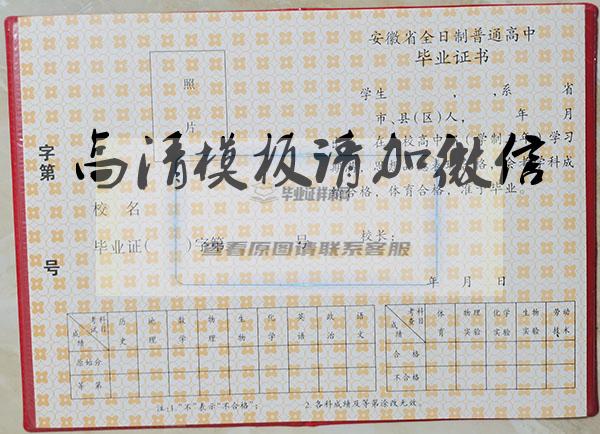 安徽省全日制普通高中
毕业证书
照
片
学生 , ,系 省
市、县(区)人, 年 月
高清模板请加微信
格,体育合格,准予毕业。
毕业证样本网
校 名
毕业证( )字第 号 校长:
查看原图请联系客服
年 月 日
字第 号
科目 考试 成绩 历史 地理 数学 物理 生物 化学 英语 政治 语文
原始分
等 第
科目 考查 成绩 体育 物理实验 化学实验 生物实验 劳动技术
合 格
不合格
注:1."不"表示"不合格"; 2.各科成绩及等第涂改无效。